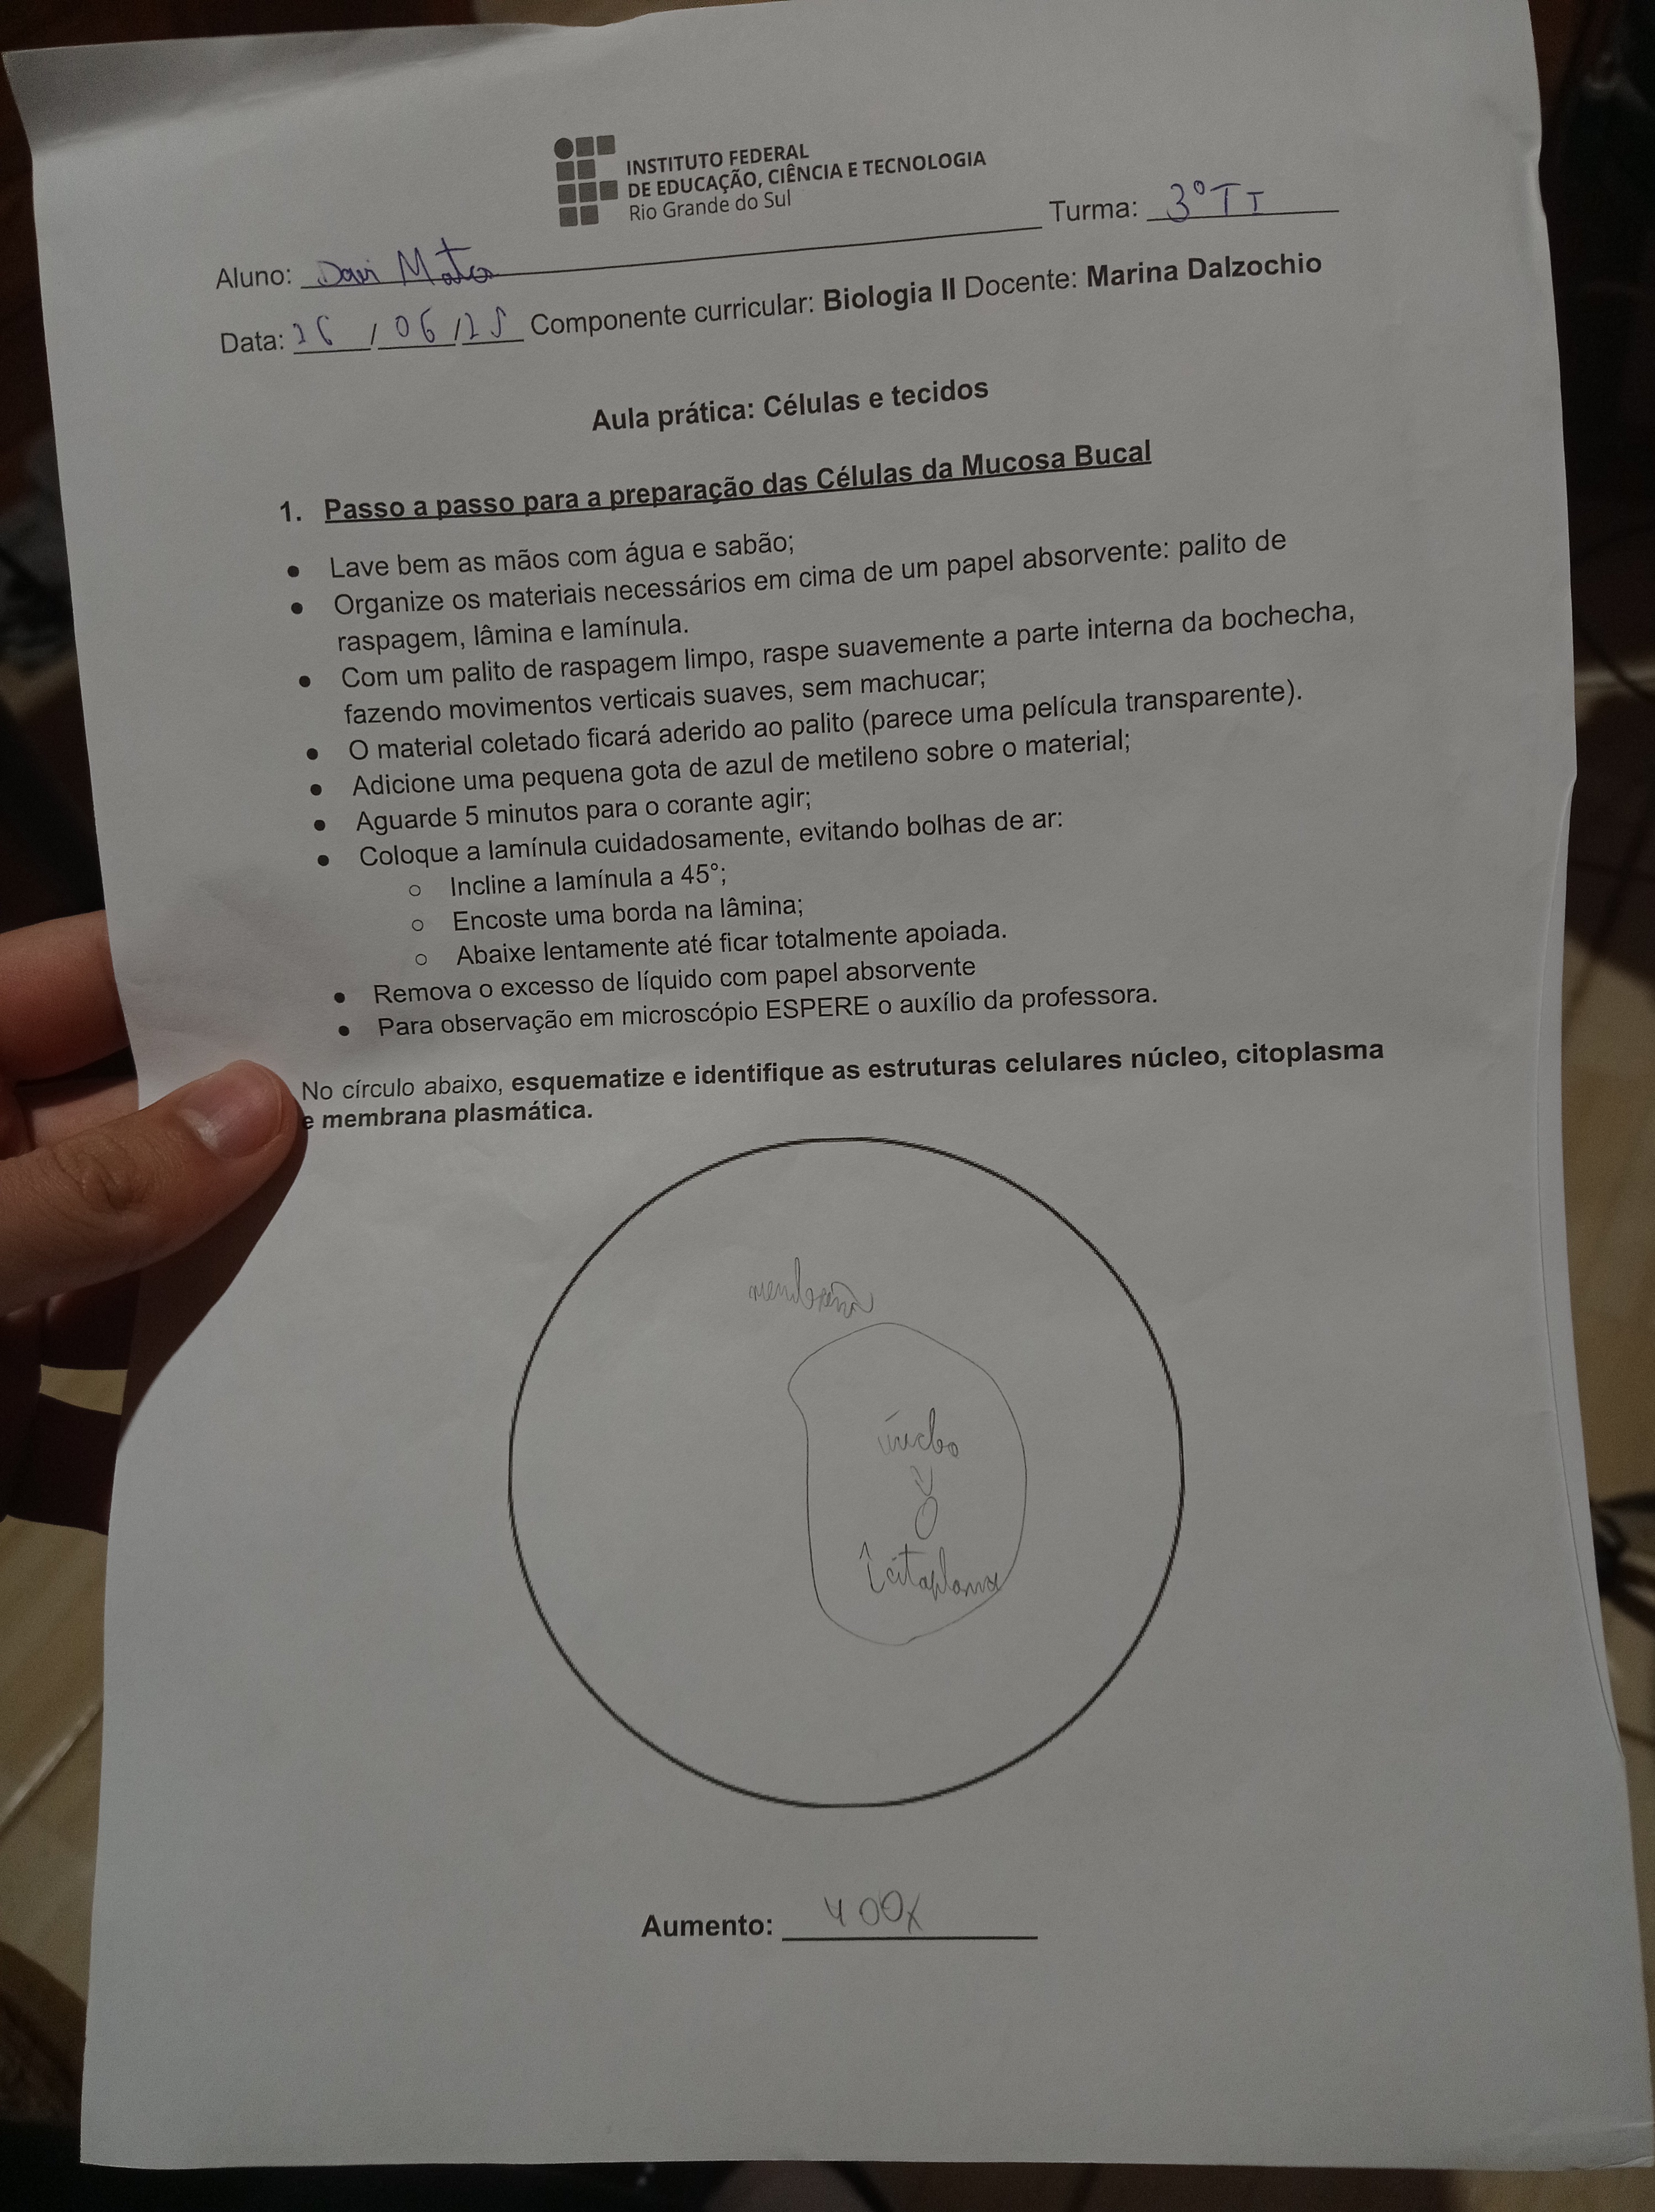 INSTITUTO FEDERAL
DE EDUCAÇÃO, CIÊNCIA E TECNOLOGIA
Rio Grande do Sul
Aluno: Davi Matos Turma: 3º TI
Data: 26/06/25 Componente curricular: Biologia II Docente: Marina Dalzochio
Aula prática: Células e tecidos
1. Passo a passo para a preparação das Células da Mucosa Bucal
● Lave bem as mãos com água e sabão;
● Organize os materiais necessários em cima de um papel absorvente: palito de
raspagem, lâmina e lamínula.
● Com um palito de raspagem limpo, raspe suavemente a parte interna da bochecha,
fazendo movimentos verticais suaves, sem machucar;
● O material coletado ficará aderido ao palito (parece uma película transparente).
● Adicione uma pequena gota de azul de metileno sobre o material;
● Aguarde 5 minutos para o corante agir;
● Coloque a lamínula cuidadosamente, evitando bolhas de ar:
○ Incline a lamínula a 45°;
○ Encoste uma borda na lâmina;
○ Abaixe lentamente até ficar totalmente apoiada.
● Remova o excesso de líquido com papel absorvente
● Para observação em microscópio ESPERE o auxílio da professora.
No círculo abaixo, esquematize e identifique as estruturas celulares núcleo, citoplasma
e membrana plasmática.
membrana
núcleo
citoplasma
Aumento: 400x